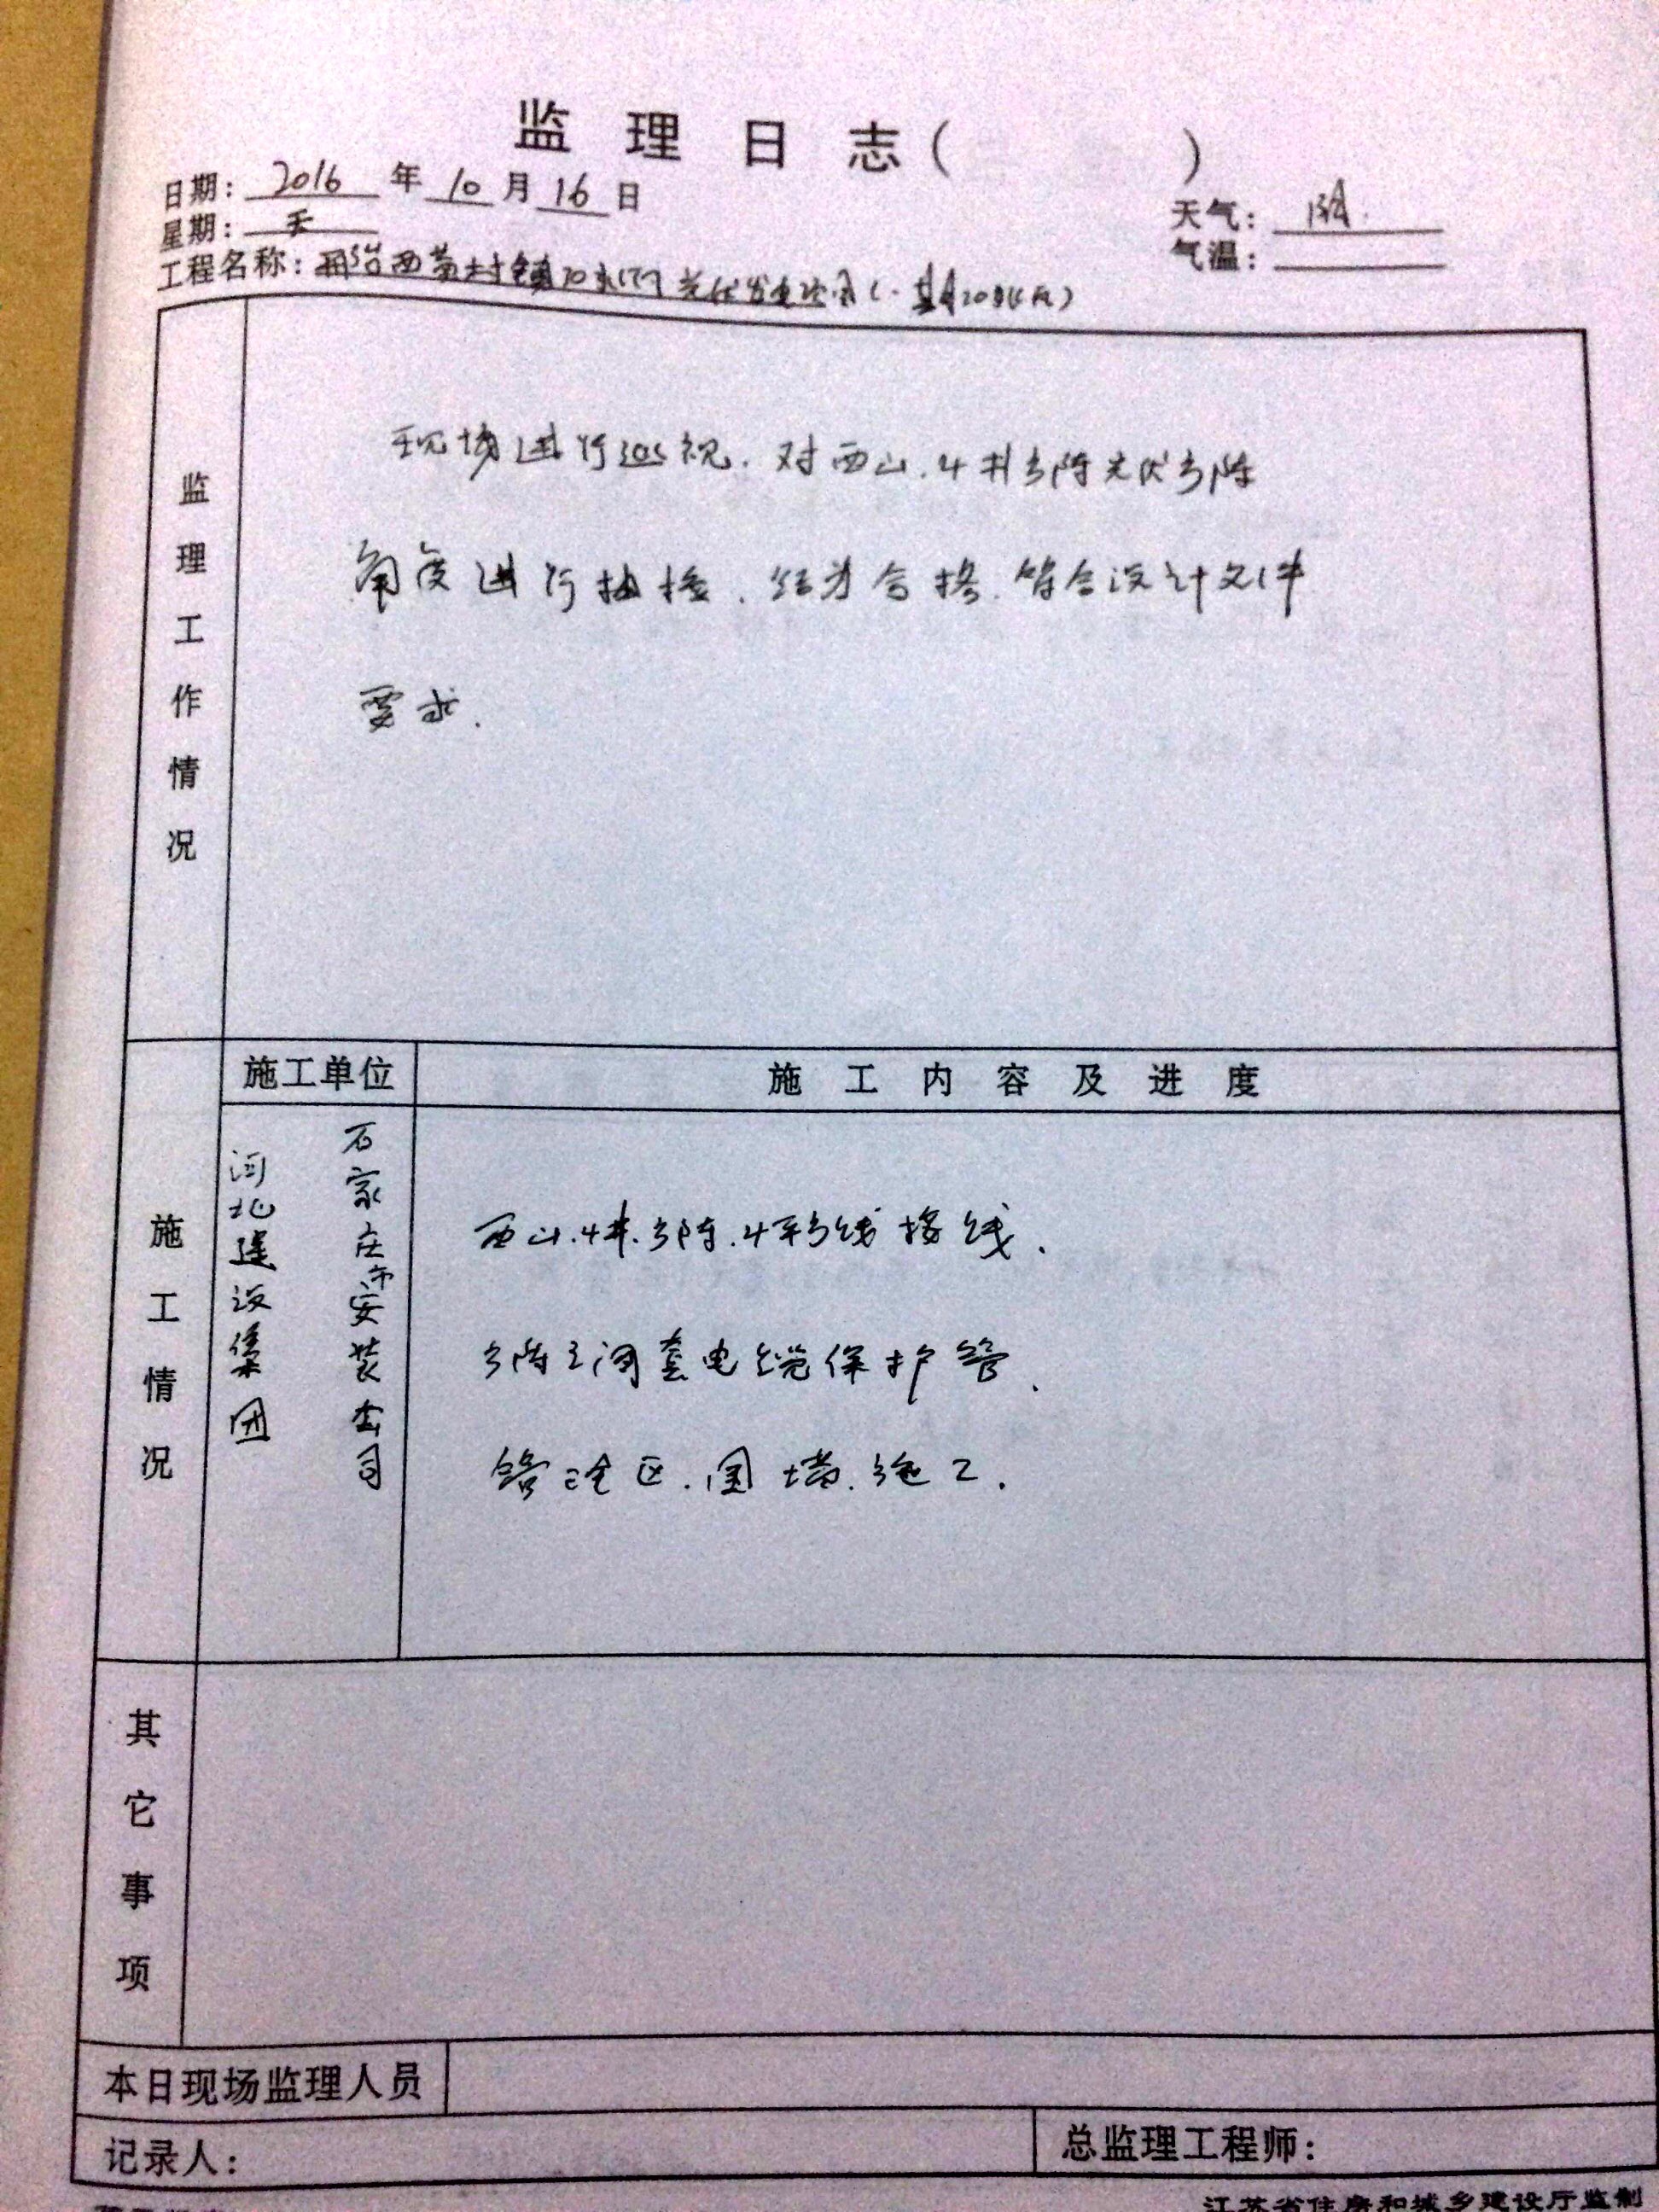 监理日志( )
日期: 2016 年 10 月 16 日
星期: 天
天气: 阴
气温:
工程名称: 西黄村镇 光伏发电项目
监理工作情况
现场进行巡视.对西山.4井方阵光伏方阵
角度进行抽检.结为合格.符合设计文件
要求.
施工单位
施工内容及进度
施工情况
石家庄市安装公司
河北建设集团
西山.4井.方阵.4平方线接线.
方阵之间套电缆保护管.
管理区.围墙.施工.
其它事项
本日现场监理人员
记录人:
总监理工程师:
江苏省住房和城乡建设厅监制